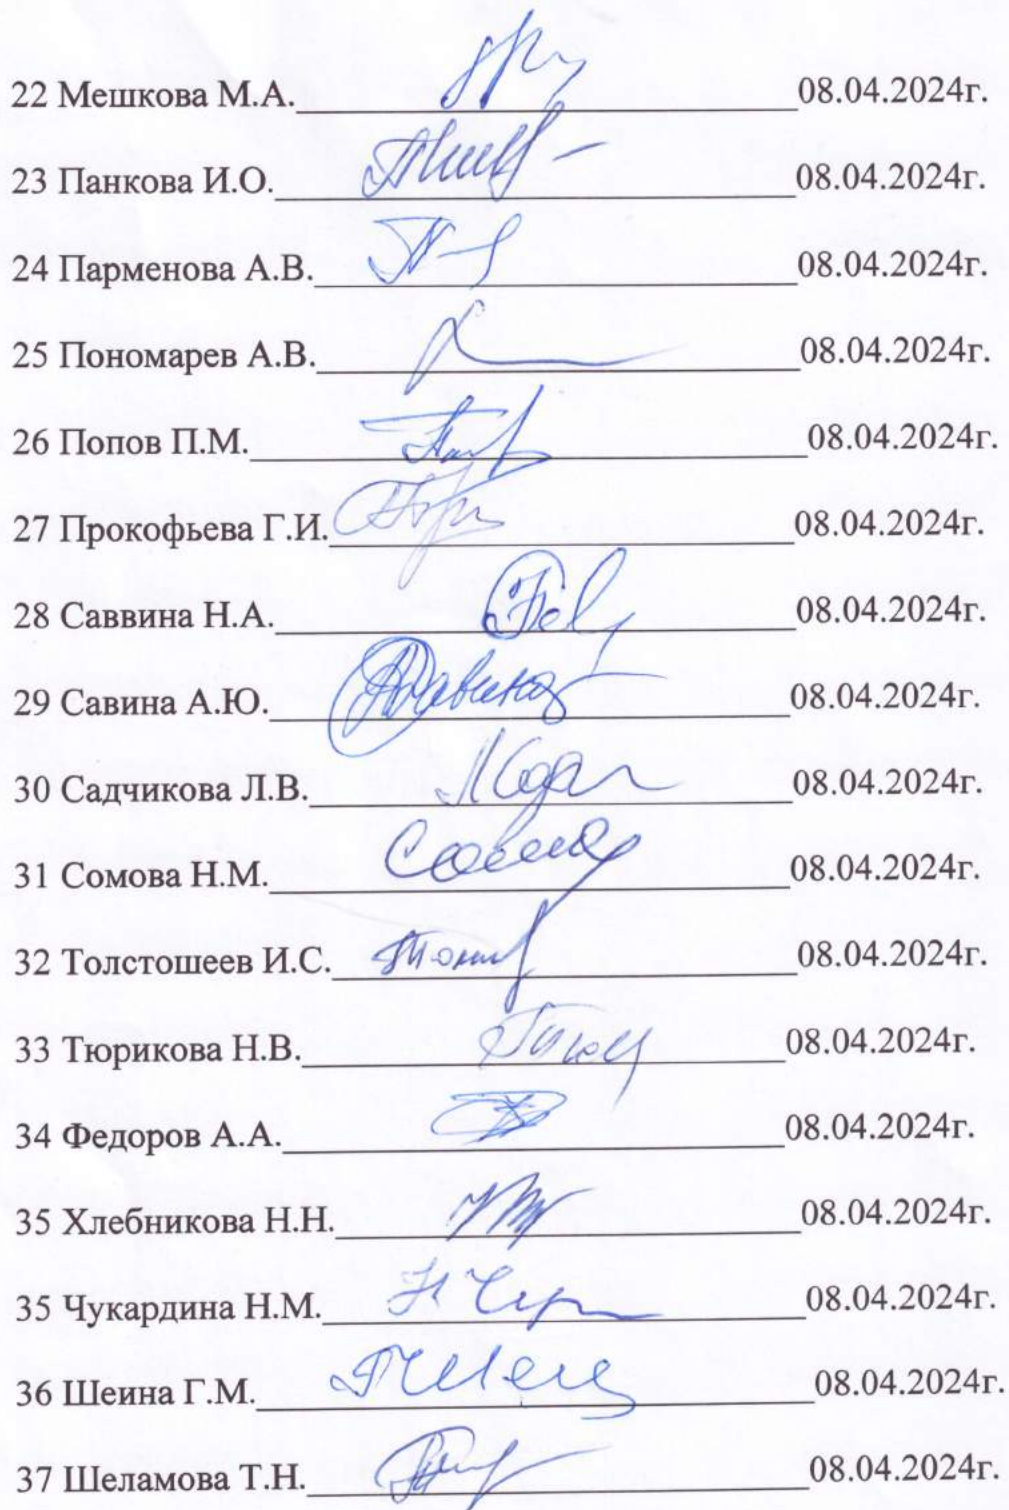 22 Мешкова М.А. 08.04.2024г.
23 Панкова И.О. 08.04.2024г.
24 Парменова А.В. 08.04.2024г.
25 Пономарев А.В. 08.04.2024г.
26 Попов П.М. 08.04.2024г.
27 Прокофьева Г.И. 08.04.2024г.
28 Саввина Н.А. 08.04.2024г.
29 Савина А.Ю. 08.04.2024г.
30 Садчикова Л.В. 08.04.2024г.
31 Сомова Н.М. 08.04.2024г.
32 Толстошеев И.С. 08.04.2024г.
33 Тюрикова Н.В. 08.04.2024г.
34 Федоров А.А. 08.04.2024г.
35 Хлебникова Н.Н. 08.04.2024г.
35 Чукардина Н.М. 08.04.2024г.
36 Шеина Г.М. 08.04.2024г.
37 Шеламова Т.Н. 08.04.2024г.